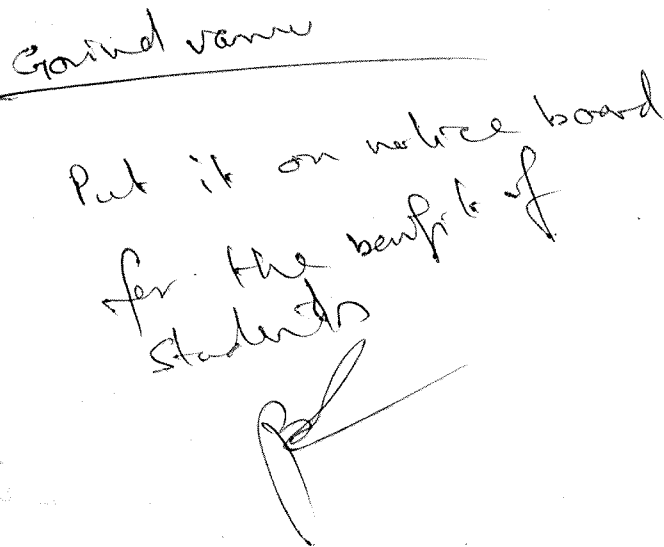 Govind
Put it on notice board
for the benefit of
students